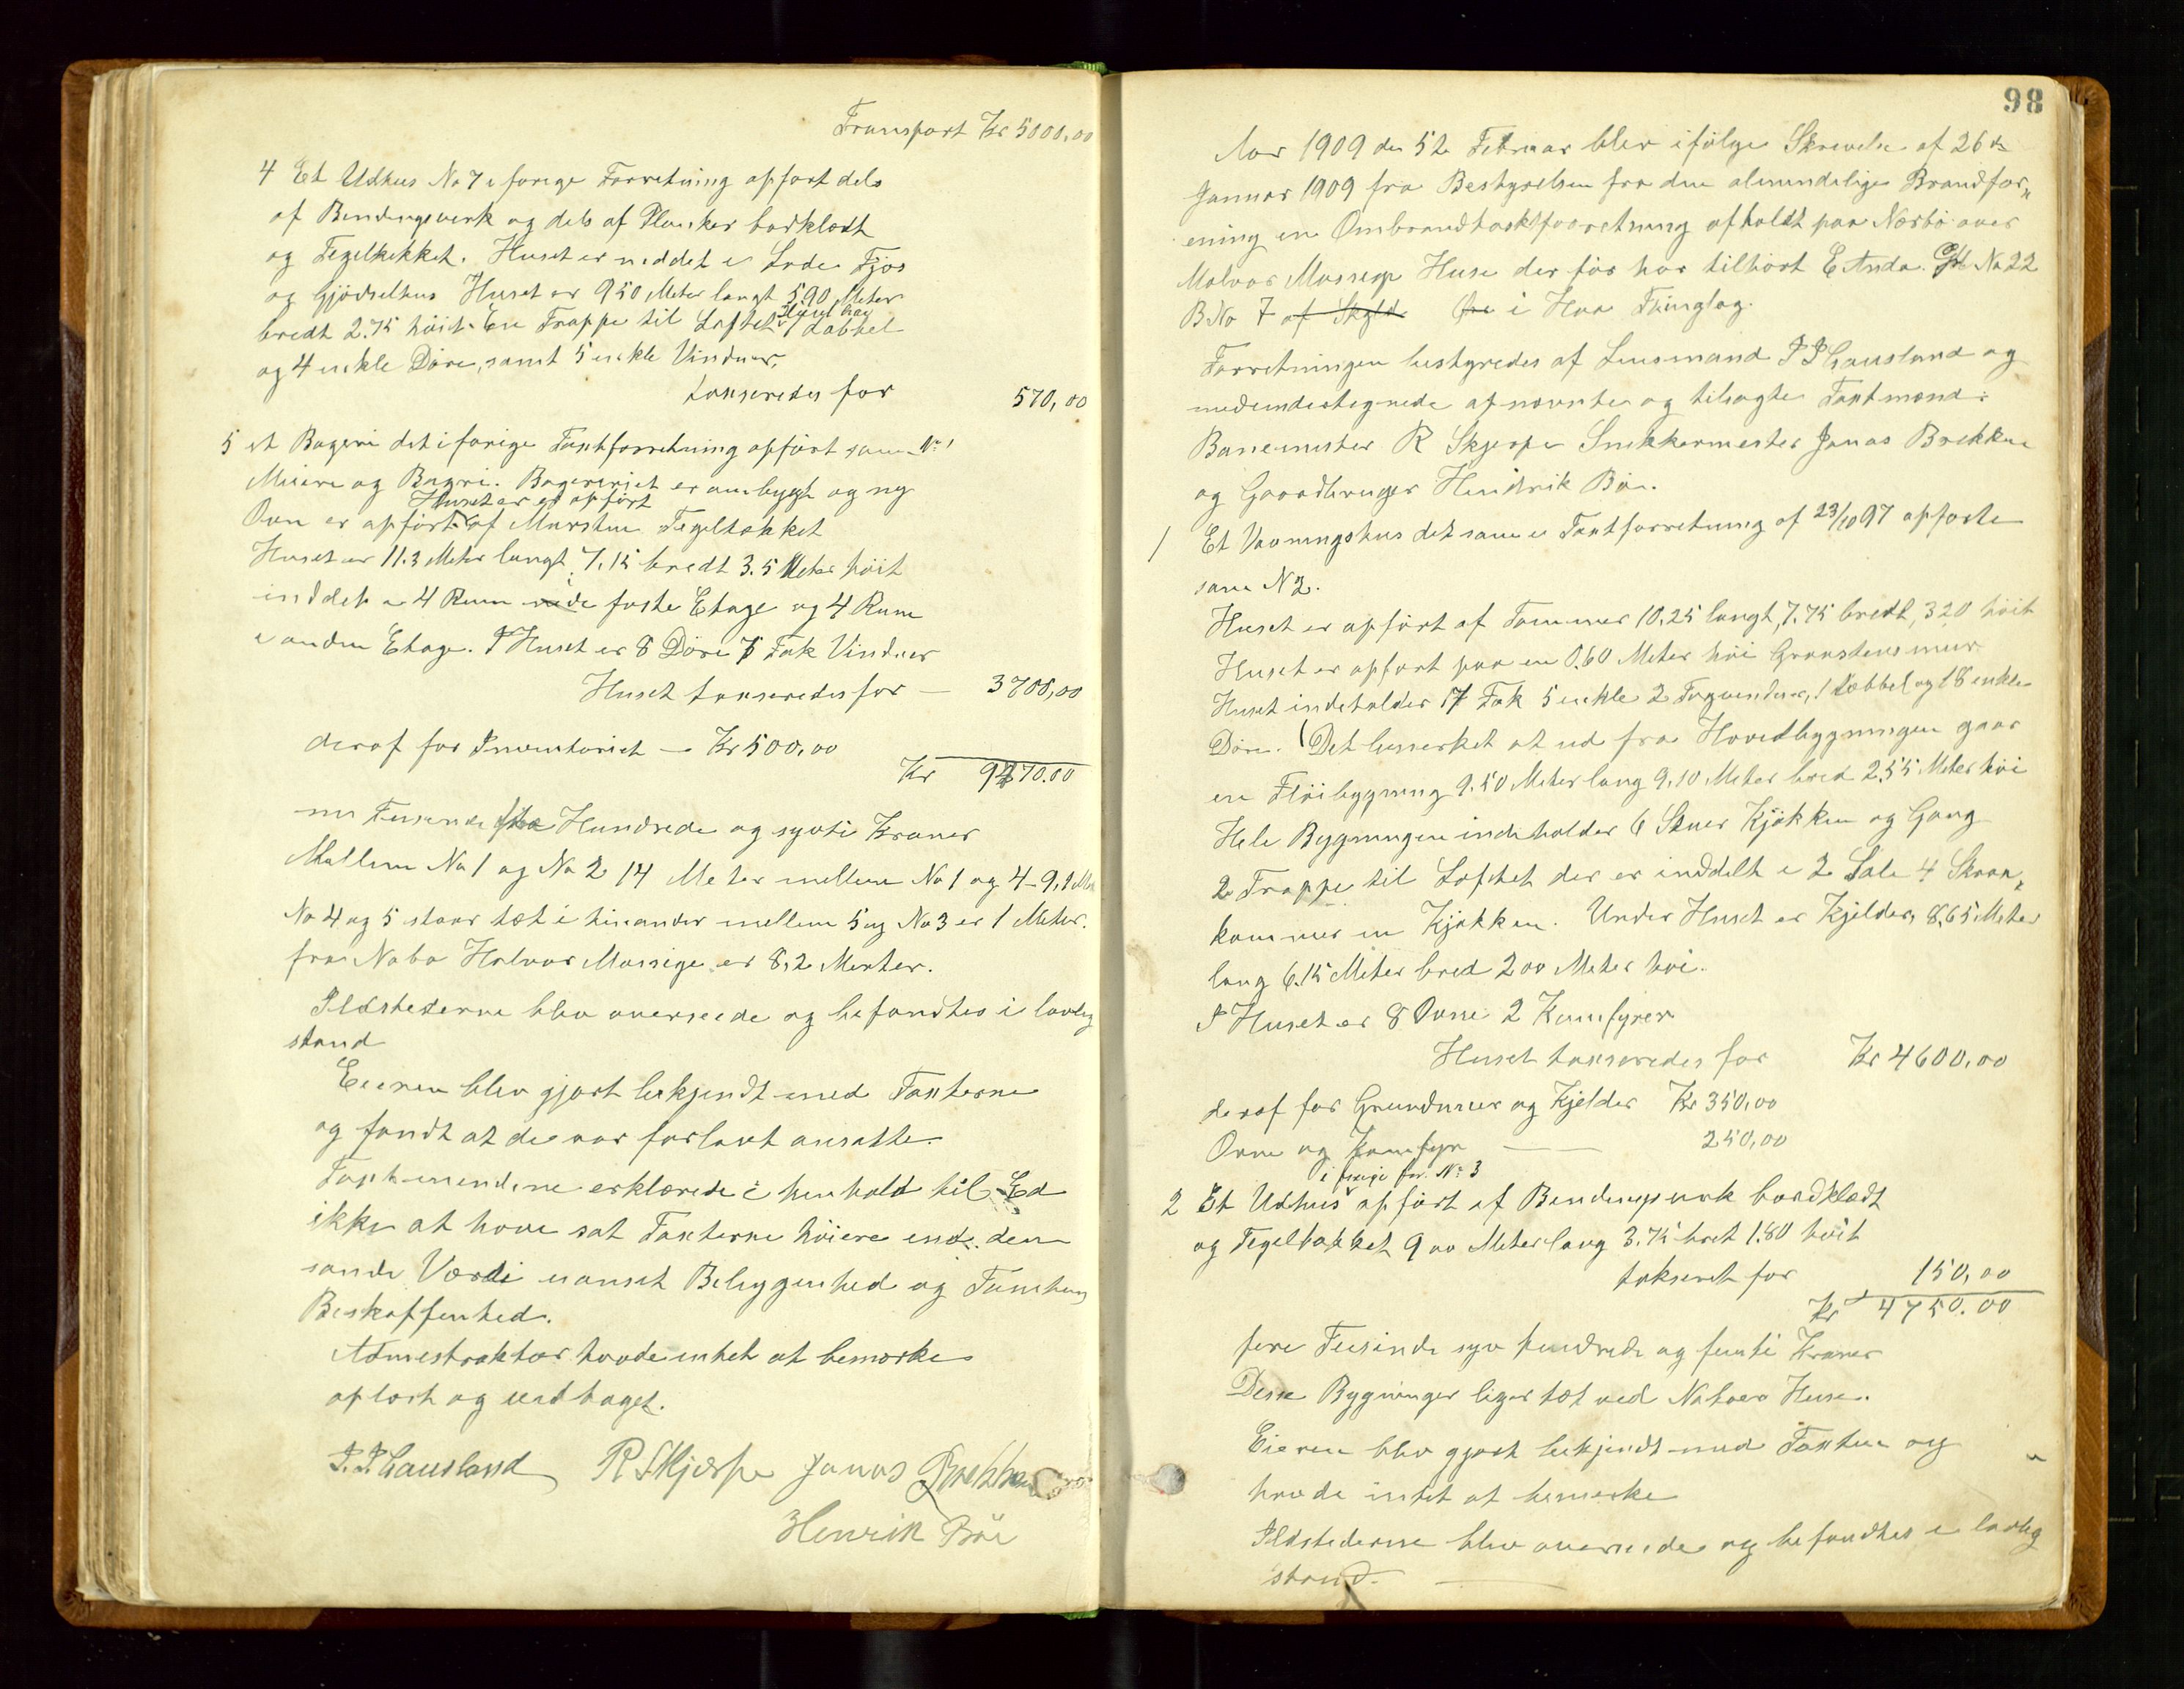 Transport Kr 5000,00
4 Et Udhus No 7 i forige Forretning opfört dels
af Bindingsverk og dels af Planker bordklædt
og Tegeltekket. Huset er inddet i Lade Fjös
og Gjödselhus Huset er 950 Meter langt 590 Meter
bredt 2.75 höit. En Trappe til Loftet 1 dobbel
og 4 enkle Döre, samt 5 enkle Vinduer,
takseredes for 570,00
5 et Bageri det i forige Taxtforretning opfört som No 1
Mieri og Bageri. Bageririet er ombygt og ny
Huset er og opfört
Ovn er opfört af Mursten Tegeltakket
Huset er 11.3 Meter langt 7.15 bredt 3.5 Meter höit
inddelt i 4 Rum i förste Etage og 4 Rum
i anden Etage. I Huset er 8 Döre 7 Fak Vinduer
Huset takseredes for — 3700,00
deraf for Inventariet — Kr 500,00
Kr 9270.00
ni Tusende to Hundrede og sytti Kroner
Mellem No 1 og No 2 14 Meter mellem No 1 og 4 - 9,1 Met
No 4 og 5 staar tæt i hinander mellem 5 og No 3 er 1 Meter.
fra Nabo Halvor Mossige er 8,2 Merter.
Ildstederne blev overseede og befandtes i lovlig
stand
Eieren blev gjort bekjendt med Taxterne
og fandt at de var forlavt ansatte.
Taxtmendene erklærede i henhold til Ed
ikke at have sat Taxterne höiere end den
sande Værdi uanset Beliggenhed og Tomtens
Beskaffenhed.
Admestraktor havde intet at bemærke
oplæst og vedtaget.
P. P. Gausland R Skjerpe Jonas Brekken
Henrik Böe
98
Aar 1909 den 5te Februar blev ifölge Skrivelse af 26 ds
Januar 1909 fra Bestyrelsen fra den almindelige Brandfor„
ening en Ombrandtaxtforretning afholdt paa Nærbö over
Malvor Mossige Huse der för har tilhört E Anda. G No 22
B No 7 af Skyld i Haa Thinglag.
Forretningen bestyredes af Lensmand P P Gausland og
nedenundertegnede opnævnte og tilsagte Taxtmænd:
Banemester R Skjerpe Snekkermester Jonas Brekken
og Gaardbruger Hendrik Böe.
1 Et Vaaningshus det same i Taxtforretning af 23/10 97 opförte
som N 2.
Huset er opfört af Tömmer 10,25 langt, 7.75 bredt, 3,20 höit
Huset er opfört paa en 0.60 Meter höi Graastensmur
Huset indeholder 17 Fak 5 enkle 2 Fagvinduer, 1 dobbel og 18 enkle
Döre. (Det bemerket at ud fra Hovedbygningen gaar
en Flöibygning 9.50 Meter lang 9.10 Meter bred 2,55 Meter höi
Hele Bygningen indeholder 6 Stuer Kjökken og Gang
2 Trappe til Loftet der er inddelt i 2 Sale 4 Skraa„
kammer en Kjökken. Under Huset er Kjelder, 8,65 Meter
lang 6.15 Meter bred 2 00 Meter höi.
I Huset er 8 Ovne 2 Komfyrer
Huset takseredes for Kr 4600,00
deraf for Grundmur og Kjelder Kr 350,00
Ovne og Komfyr — — 250,00
i forige for. No 3
2 Et Udhus opfört af Bindingsverk bordklædt
og Tegeltakket 9 00 Meter lang 3.75 bret 1.80 höit
takseret for 150,00
Kr 4750.00
fire Tusinde syv hundrede og femti Kroner
Disse Bygninger liger tæt ved Naboer Huse.
Eieren blev gjort bekjendt med Taxten og
havde intet at bemerke
Ildstederne blev overseede og befandtes i lovlig
stand.